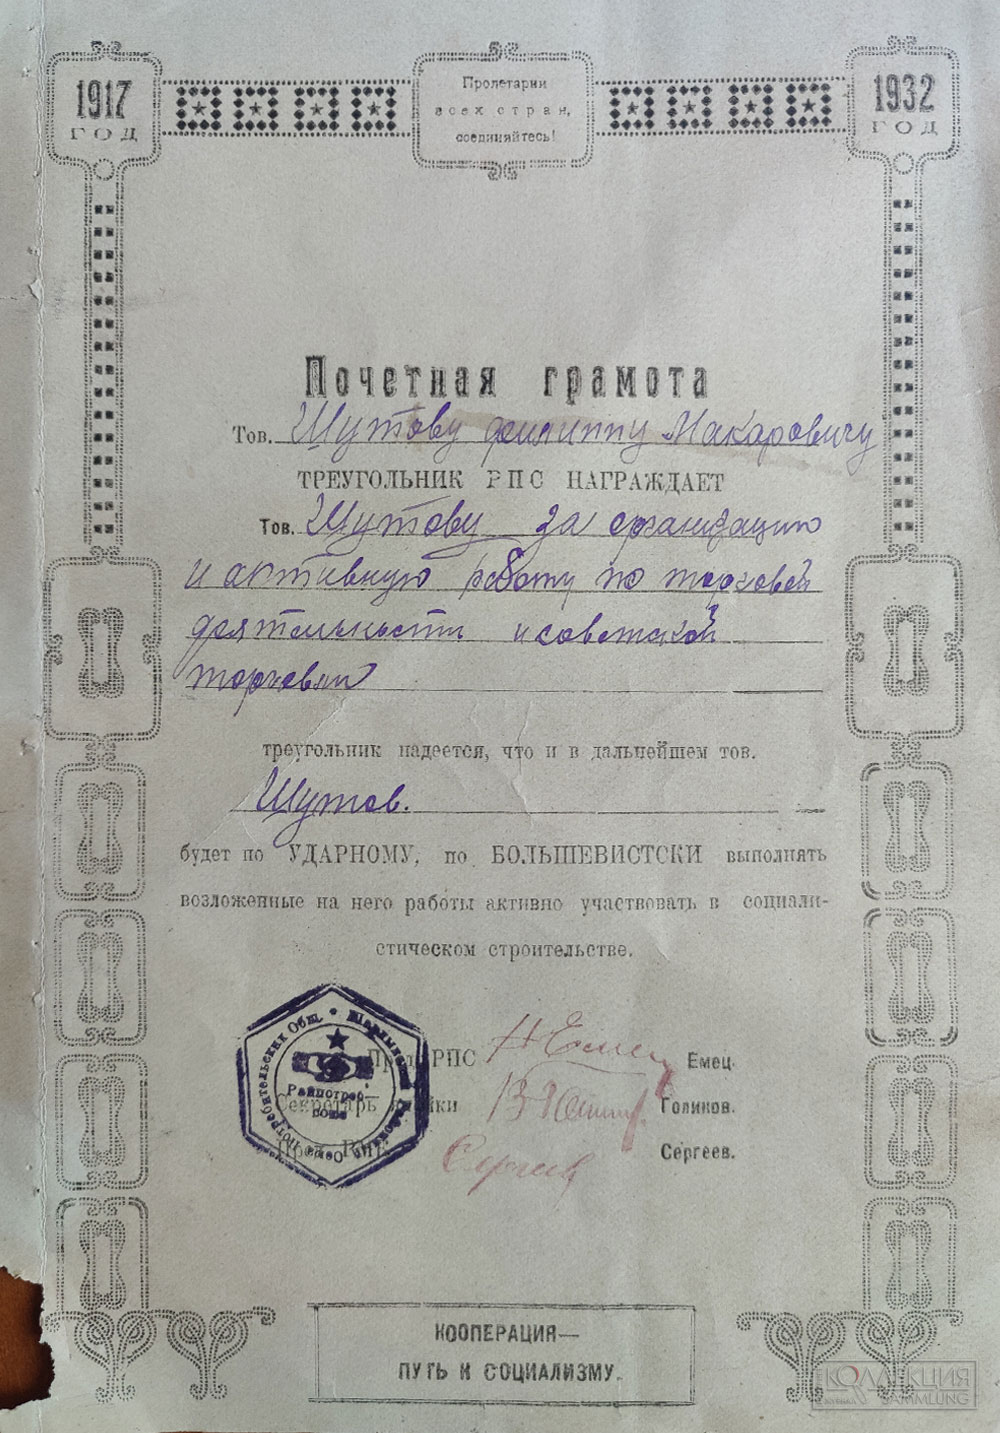 1917
ГОД
Пролетарии
всех стран,
соединяйтесь!
1932
ГОД
Почетная грамота
Тов. Шутову Филиппу Макаровичу
ТРЕУГОЛЬНИК РПС НАГРАЖДАЕТ
Тов. Шутову за организацию
и активную работу по торговой
деятельности и советской
торговли
треугольник надеется, что и в дальнейшем тов.
Шутов.
будет по УДАРНОМУ, по БОЛЬШЕВИСТСКИ выполнять
возложенные на него работы активно участвовать в социали-
стическом строительстве.
РПС Емец.
Секретарь Голиков.
Сергеев Сергеев.
Райпотреб-
союз
КООПЕРАЦИЯ—
ПУТЬ К СОЦИАЛИЗМУ.
КОЛЛЕКЦИЯ
SAMMLUNG